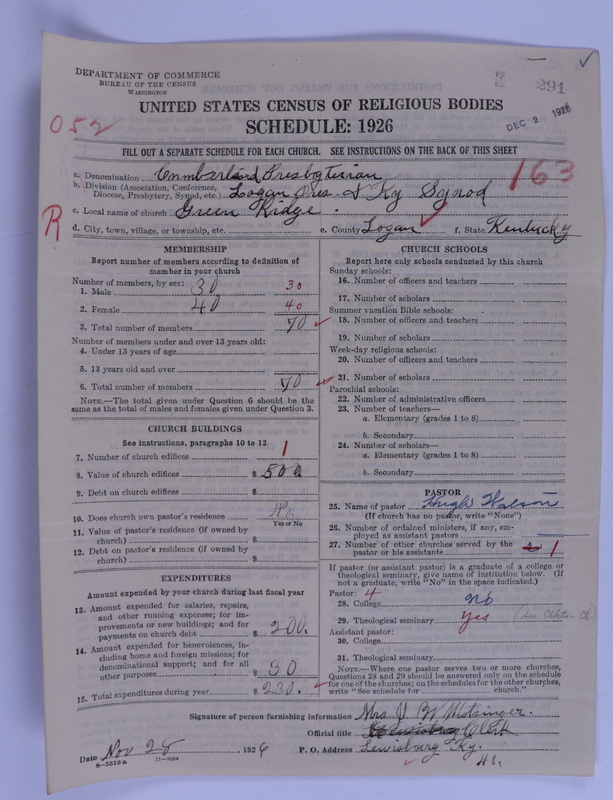 DEPARTMENT OF COMMERCE
BUREAU OF THE CENSUS
WASHINGTON
291
DEC 2 1926
UNITED STATES CENSUS OF RELIGIOUS BODIES
SCHEDULE: 1926
052
FILL OUT A SEPARATE SCHEDULE FOR EACH CHURCH. SEE INSTRUCTIONS ON THE BACK OF THIS SHEET
163
a. Denomination Cumberland Presbyterian
b. Division (Association, Conference, Diocese, Presbytery, Synod, etc.) Logan Pres & Ky Synod
c. Local name of church Green Ridge.
R
d. City, town, village, or township, etc. e. County Logan f. State Kentucky
MEMBERSHIP
Report number of members according to definition of
member in your church
Number of members, by sex:
1. Male 30 30
2. Female 40 40
3. Total number of members 70
Number of members under and over 13 years old:
4. Under 13 years of age
5. 13 years old and over
6. Total number of members 70
NOTE.—The total given under Question 6 should be the
same as the total of males and females given under Question 3.
CHURCH BUILDINGS
See instructions, paragraphs 10 to 12
7. Number of church edifices 1
8. Value of church edifices $ 500
9. Debt on church edifices $
10. Does church own pastor's residence? No
Yes or No
11. Value of pastor's residence (if owned by
church) $
12. Debt on pastor's residence (if owned by
church) $
EXPENDITURES
Amount expended by your church during last fiscal year
13. Amount expended for salaries, repairs,
and other running expenses; for im-
provements or new buildings; and for
payments on church debt $ 200.
14. Amount expended for benevolences, in-
cluding home and foreign missions; for
denominational support; and for all
other purposes $ 30
15. Total expenditures during year $ 230.
CHURCH SCHOOLS
Report here only schools conducted by this church
Sunday schools:
16. Number of officers and teachers
17. Number of scholars
Summer vacation Bible schools:
18. Number of officers and teachers
19. Number of scholars
Week-day religious schools:
20. Number of officers and teachers
21. Number of scholars
Parochial schools:
22. Number of administrative officers
23. Number of teachers—
a. Elementary (grades 1 to 8)
b. Secondary
24. Number of scholars—
a. Elementary (grades 1 to 8)
b. Secondary
PASTOR
25. Name of pastor Hugh Watson
(If church has no pastor, write "None")
26. Number of ordained ministers, if any, em-
ployed as assistant pastors
27. Number of other churches served by the
pastor or his assistants 1
If pastor (or assistant pastor) is a graduate of a college or
theological seminary, give name of institution below. (If
not a graduate, write "No" in the space indicated.)
Pastor: 4
28. College No
29. Theological seminary Yes
Assistant pastor:
30. College
31. Theological seminary
NOTE.—Where one pastor serves two or more churches,
Questions 28 and 29 should be answered only on the schedule
for one of the churches; on the schedules for the other churches,
write "See schedule for church."
Signature of person furnishing information Mrs J W
Official title Clerk
Date Nov 28, 1926 P. O. Address Lewisburg Ky.
8-5518a